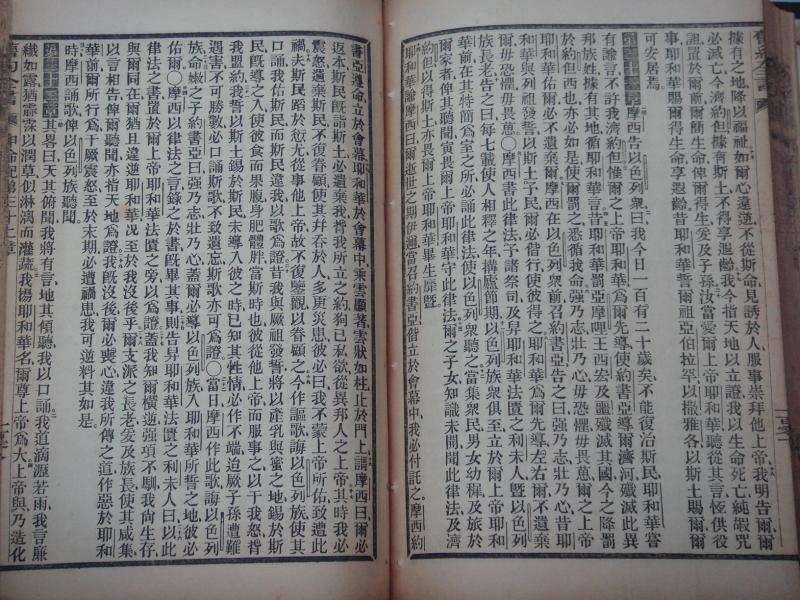 據有之地降以福祉如爾心違逆不從斯命見誘於人服事崇拜他上帝我明告爾爾
必滅亡今濟約但據有斯土不得享遐齡我今指天地以立證我以生命死亡純嘏咒
詛置於爾前爾簡生命俾爾得生爰及子孫汝當愛爾上帝耶和華聽從其言恆供役
耶和華賜爾得生命享遐齡昔耶和華誓爾祖亞伯拉罕以撒雅各以斯土賜爾爾
可安居焉
摩西告以色列衆曰我今日一百有二十歲矣不能復治斯民耶和華嘗
有諭言不許我濟約但惟爾之上帝耶和華爲爾先導使約書亞導爾濟河殲滅此異
邦族姓據有其地循耶和華言昔耶和華罰亞摩哩王西宏及噩殲滅其國今之降罰
於約但西也亦必如是使爾罰之悉循我命强乃志壯乃心毋恐懼毋畏葸爾之上帝耶
和華佑爾必不遺棄爾摩西在以色列衆前召約書亞告之曰强乃志壯乃心昔耶
和華與列祖發誓以斯土予民爾必偕行使彼得之耶和華爲爾先導左右爾不遺棄
爾毋恐懼毋畏葸○摩西書此律法予諸祭司及舁耶和華法匱之利未人曁以色列
族長老告之曰每七載使人相釋之年搆廬節期以色列族衆俱至立於爾上帝耶和
華前在其特簡爲室之所必誦此律法使以色列衆聽之當集衆民男女幼穉及旅於
爾家者俾其聽聞寅畏爾上帝耶和華守此律法爾之子女知識未開聞此律法及濟
約但以得斯土亦畏爾上帝耶和華畢生靡曁
耶和華諭摩西曰爾逝世之期伊邇當召約書亞偕立於會幕中我必付託之摩西約
書亞遵命立於會幕耶和華於會幕中乘雲顯著雲狀如柱止於門上謂摩西曰爾必
返本斯民旣詣斯土必遺棄我背我所立之約狥己私欲從異邦人之上帝其時我必
震怒遺棄斯民不復眷顧使其幷吞於人多更災患彼必曰我不蒙上帝所佑致遭此
禍夫斯民蹈於愆尤從事他上帝故不復鑒觀以眷顧之今作謳歌誨以色列族使其
口誦我佑斯民而斯民違我以歌爲證昔我與厥祖發誓將以產乳與蜜之地錫於斯
民旣導之入使彼食而果腹身肥體胖當斯時也彼從他上帝而服事之以干我怒背
我盟約我未誓以斯土錫於斯民未導入彼之時已知其性情必作不端迨厥子孫遭難
遇害不可勝數必口誦斯歌不致遺忘斯歌亦可爲證○當日摩西作此歌誨以色列
族命嫩之子約書亞曰强乃志壯乃心蓋爾必導以色列族入耶和華所誓之地彼必
佑爾○摩西以律法之言錄之於書旣畢其事則告舁耶和華法匱之利未人曰以此
律法之書置於爾上帝耶和華法匱之旁以爲證蓋我知爾橫逆强項不馴我尚生存
與爾同在爾猶且違逆耶和華况至於我沒後乎爾支派之長老爰及族長使其咸集
以言相告俾爾聽聞亦指天地爲證我旣沒後爾必喪心違我所傳之道作惡於耶和
華前爾所行爲干厥震怒至於末期必遭禍患我可逆料其如是
時摩西誦歌俾以色列族聽聞
其畧曰天其俯聞我將有言地其傾聽我以口誦我道滴瀝若雨我言廉
纖如露猶霢霂以潤草似淋漓而灌蔬我揚耶和華名爾尊上帝爲大上帝與乃造化